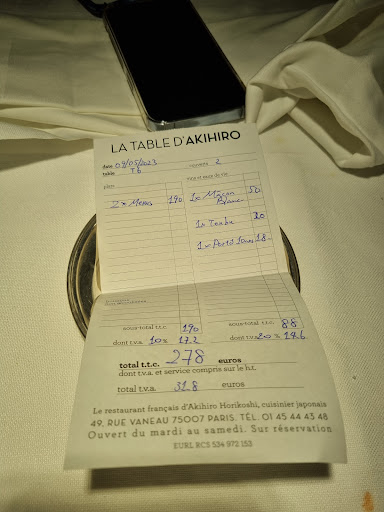 LA TABLE D'AKIHIRO
date 09/05/2023 couverts 2
table T6
plats vins et eaux de vie
2 x Menus 190 1 x Mâcon Blanc 50
20
1 x Porto 10ans 18
sous-total t.t.c. 190 sous-total t.t.c. 88
dont t.v.a. 10% 17.2 dont t.v.a. 20% 14.6
total t.t.c. 278 euros
dont t.v.a. et service compris sur le h.t.
total t.v.a. 31.8 euros
Le restaurant français d'Akihiro Horikoshi, cuisinier japonais
49, RUE VANEAU 75007 PARIS. TÉL. 01 45 44 43 48
Ouvert du mardi au samedi. Sur réservation
EURL RCS 534 972 153